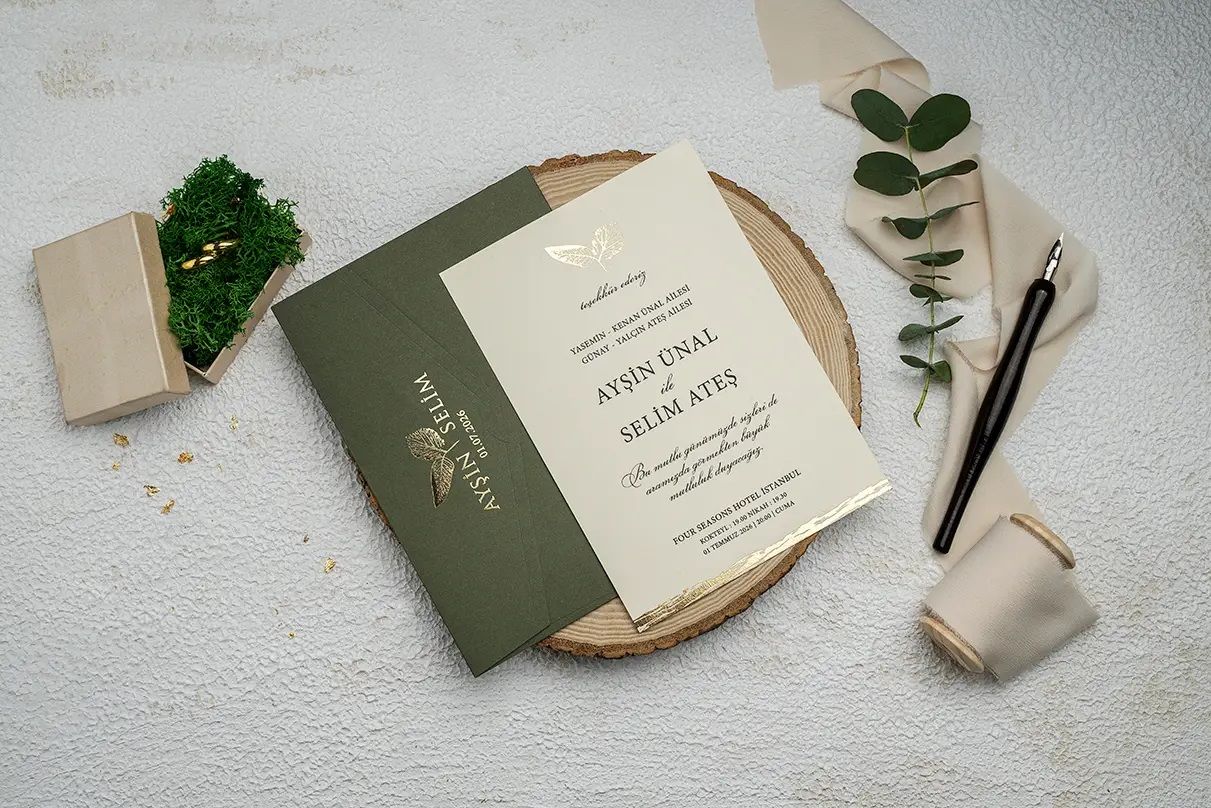 AYŞİN SELİM
01.07.2026
teşekkür ederiz
YASEMIN - KENAN ÜNAL AILESI
GÜNAY - YALÇIN ATEŞ AILESI
AYŞİN ÜNAL
ile
SELİM ATEŞ
Bu mutlu günümüzde sizleri de
aramızda görmekten büyük
mutluluk duyacağız.
FOUR SEASONS HOTEL İSTANBUL
KOKTEYL : 19.00 NİKAH : 19.30
01 TEMMUZ 2026 | 20:00 | CUMA